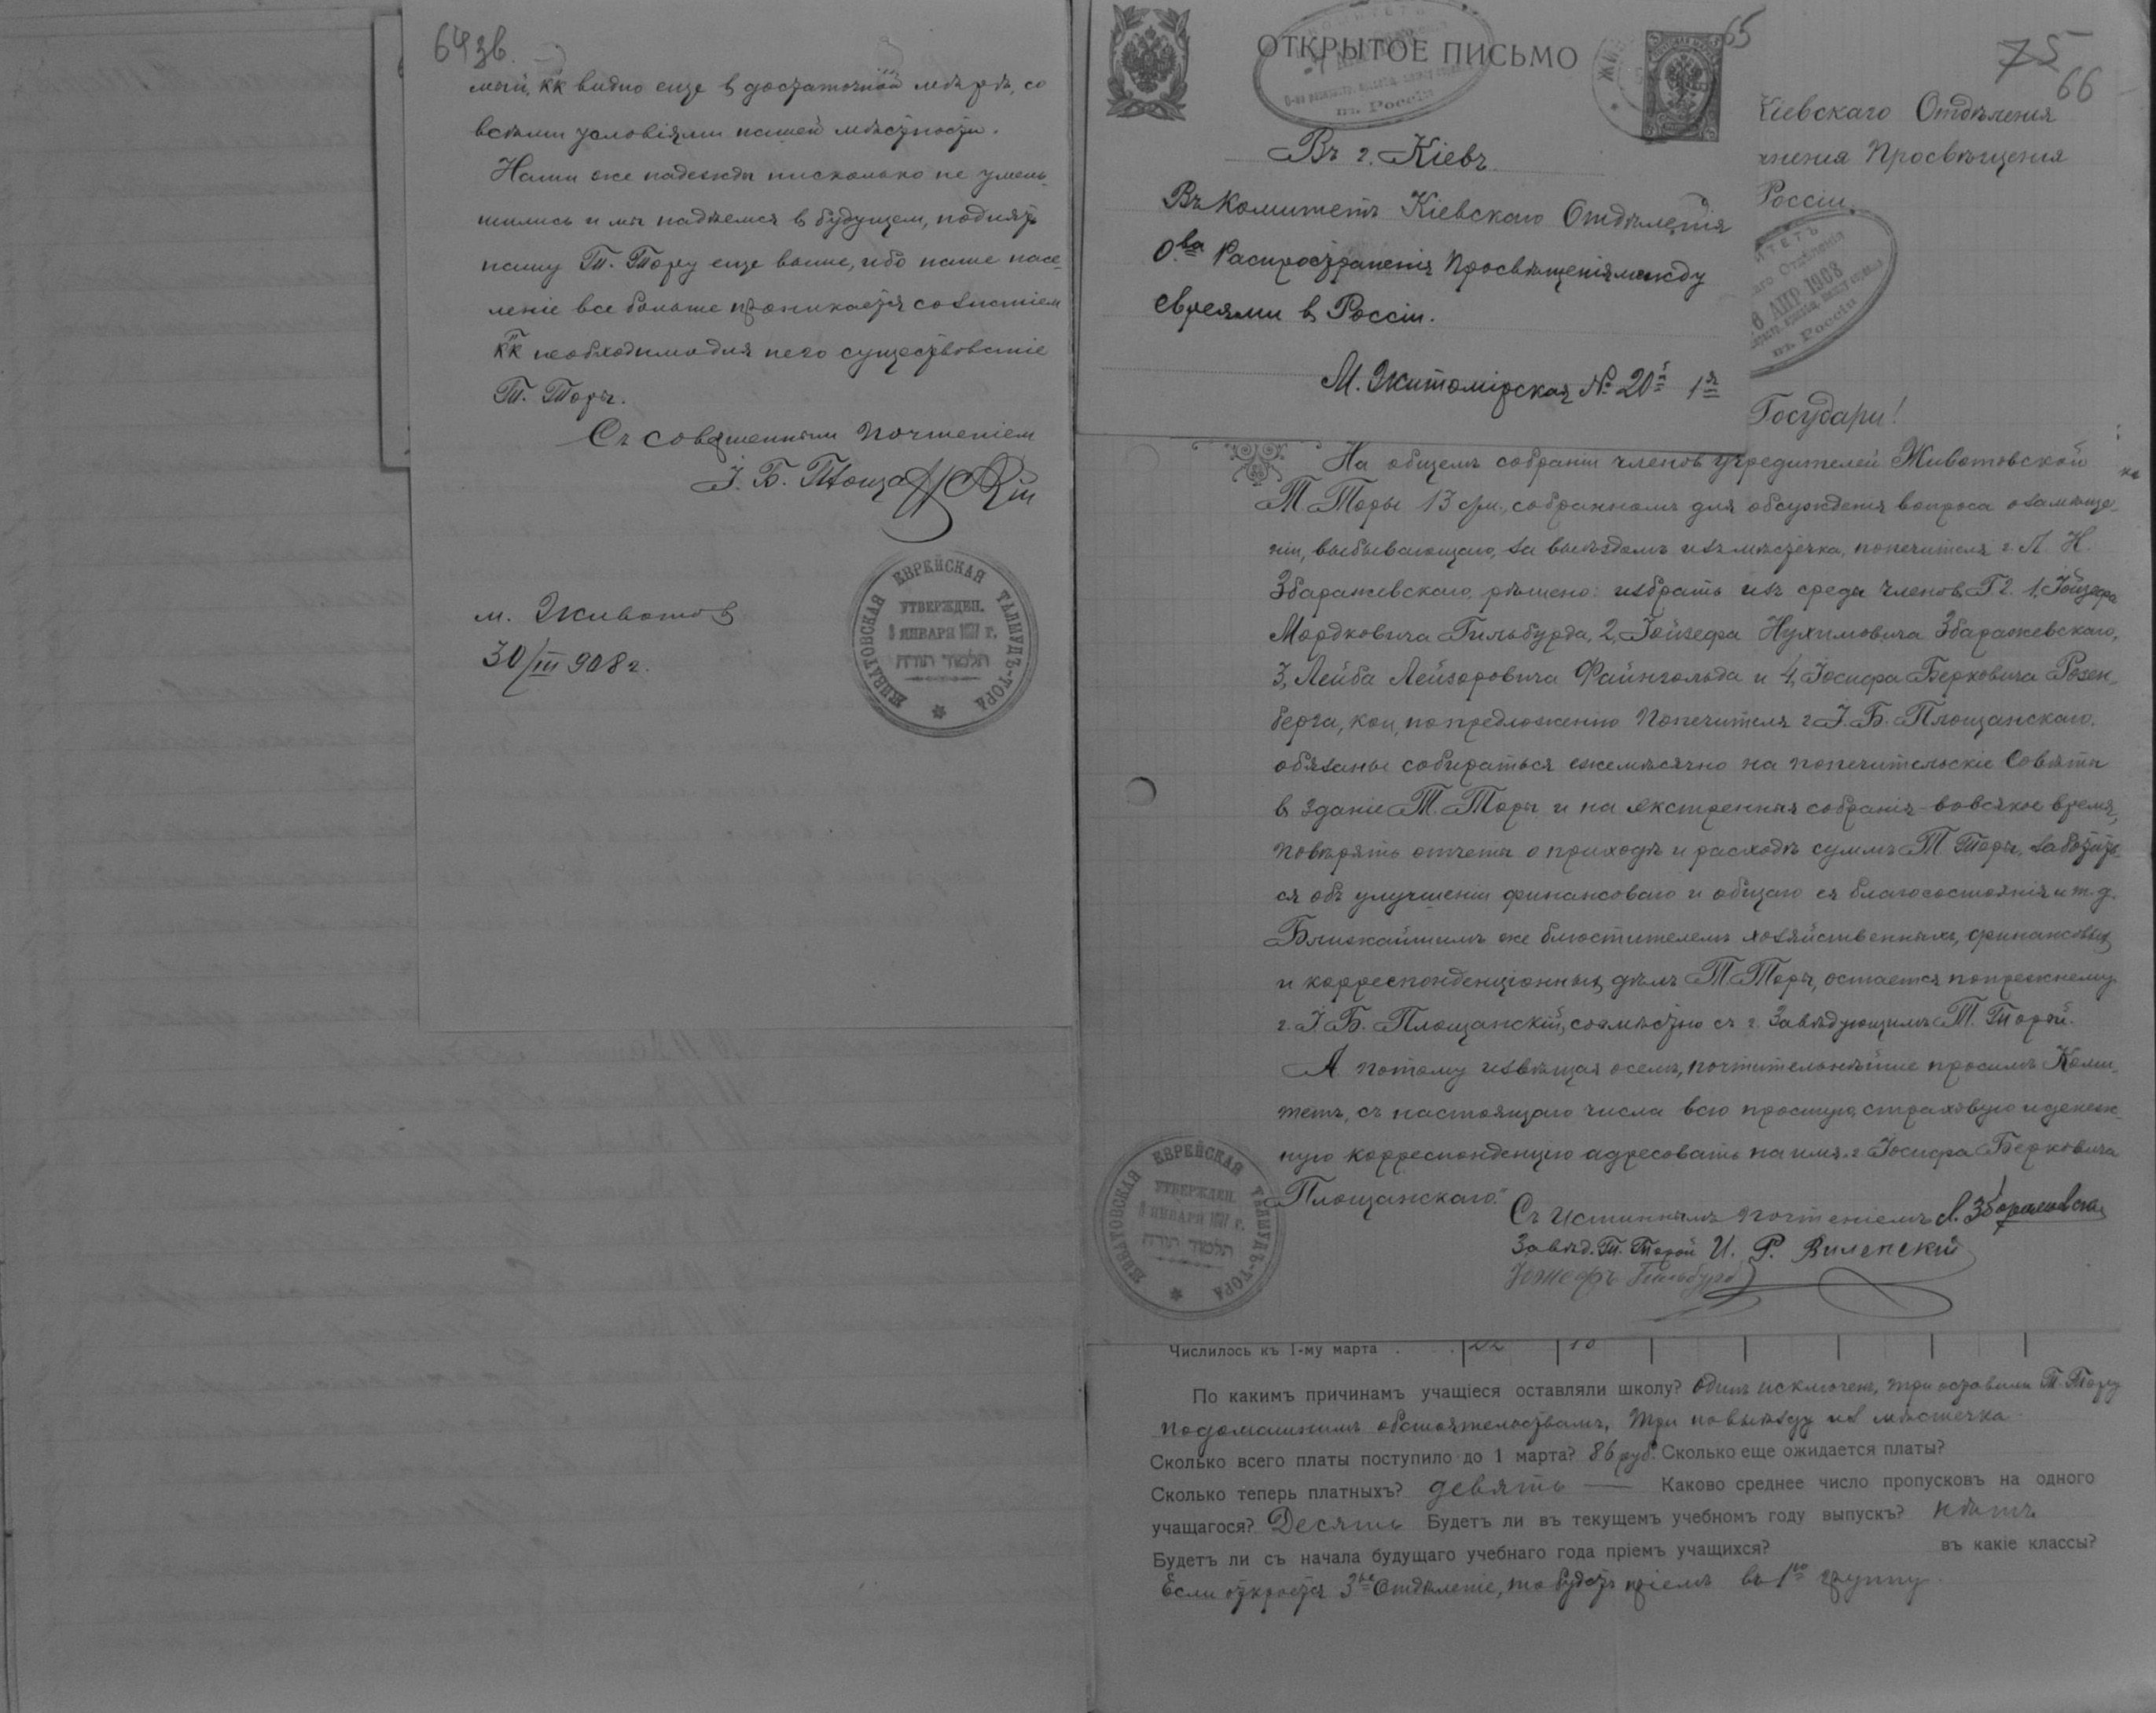 64 зв.
мый, кк видно еще в достаточной мѣрѣ, со
всѣми условіями нашей мѣстности.
Наши же надежды нисколько не умень-
шились и мы надѣемся в будущем, поднять
нашу Т. Тору еще выше, ибо наше насе-
леніе все больше проникается сознаніем
кк необходимо для него существованіе
Т. Торы.
Съ совершенным почтеніем
І. Б. Площанскій
м. Животов
30/III 908 г.
ЖИВАТОВСКАЯ ЕВРЕЙСКАЯ ТАЛМУДЪ-ТОРА
УТВЕРЖДЕН.
8 ЯНВАРЯ 1897 г.
תלמוד תורה
65
75
66
ОТКРЫТОЕ ПИСЬМО
въ Россіи
Въ г. Кіевъ
Въ Комитетъ Кіевскаго Отдѣленія
О-ва Распространенія Просвѣщенія между
евреями в Россіи.
М. Житомірская № 20
Кіевскаго Отдѣленія
нения Просвѣщения
Россіи.
6 АПР 1908
въ Россіи
Государи!
На общемъ собраніи членов учредителей Животовской
Т. Торы 13 с/м., собранномъ для обсужденія вопроса о замѣще-
ніи, выбывающаго, за выѣздомъ изъ мѣстечка, попечителя г. Л. Н.
Збаражевскаго, рѣшено: избрать изъ среды членов Г.г. 1, Іойзефа
Мордковича Гильбурда, 2, Іойзефа Нухимовича Збаражевскаго,
3, Лейба Лейзоровича Файнгольда и 4, Іосифа Берковича Розен-
берга, кои, по предложенію Попечителя г. І. Б. Площанскаго,
обязаны собираться ежемѣсячно на попечительскіе Совѣты
в зданіе Т. Торы и на экстренныя собранія - во всякое время,
повѣрять отчеты о приходѣ и расходѣ суммъ Т. Торы, заботить-
ся объ улучшеніи финансоваго и общаго ея благосостоянія и т. д.
Ближайшимъ же блюстителемъ хозяйственныхъ, финансовых
и корреспонденціонных дѣлъ Т. Торы, остается попрежнему
г. І. Б. Площанскій, совмѣстно съ г. Завѣдующимъ Т. Торой.
А потому извѣщая о семъ, почтительнѣйше просимъ Коми-
тетъ, съ настоящаго числа всю простую, страховую и денеж-
ную корреспонденцію адресовать на имя г. Іосифа Берковича
Площанскаго."
Съ истиннымъ почтеніемъ Л. Збаражевскій
Завѣд. Т. Торой И. Р. Виленскій
Іойзефъ Гильбурд
ЖИВАТОВСКАЯ ЕВРЕЙСКАЯ ТАЛМУДЪ-ТОРА
УТВЕРЖДЕН.
8 ЯНВАРЯ 1897 г.
תלמוד תורה
Числилось къ 1-му марта . . 22 10
По какимъ причинамъ учащіеся оставляли школу? Один исключенъ, три оставили Т. Тору
по домашнимъ обстоятельствамъ, три по выѣзду из мѣстечка
Сколько всего платы поступило до 1 марта? 86 руб. Сколько еще ожидается платы?
Сколько теперь платныхъ? девять — Каково среднее число пропусковъ на одного
учащагося? Десять Будетъ ли въ текущемъ учебномъ году выпускъ? нѣтъ
Будетъ ли съ начала будущаго учебнаго года пріемъ учащихся? въ какіе классы?
Если откроется 3-ье Отдѣленіе, то будетъ пріемъ въ 1-ю группу